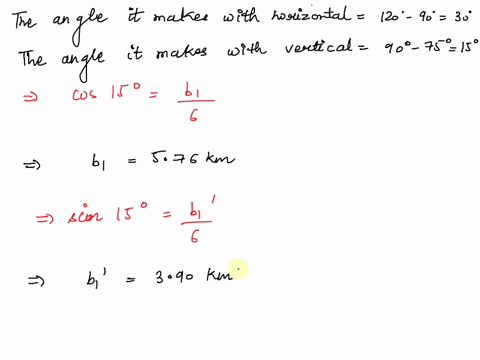 The angle it makes with horizontal = 120° - 90° = 30°
The angle it makes with vertical = 90° - 75° = 15°
⇒ cos 15° = b₁/6
⇒ b₁ = 5.76 km
⇒ sin 15° = b₁'/6
⇒ b₁' = 3.90 km